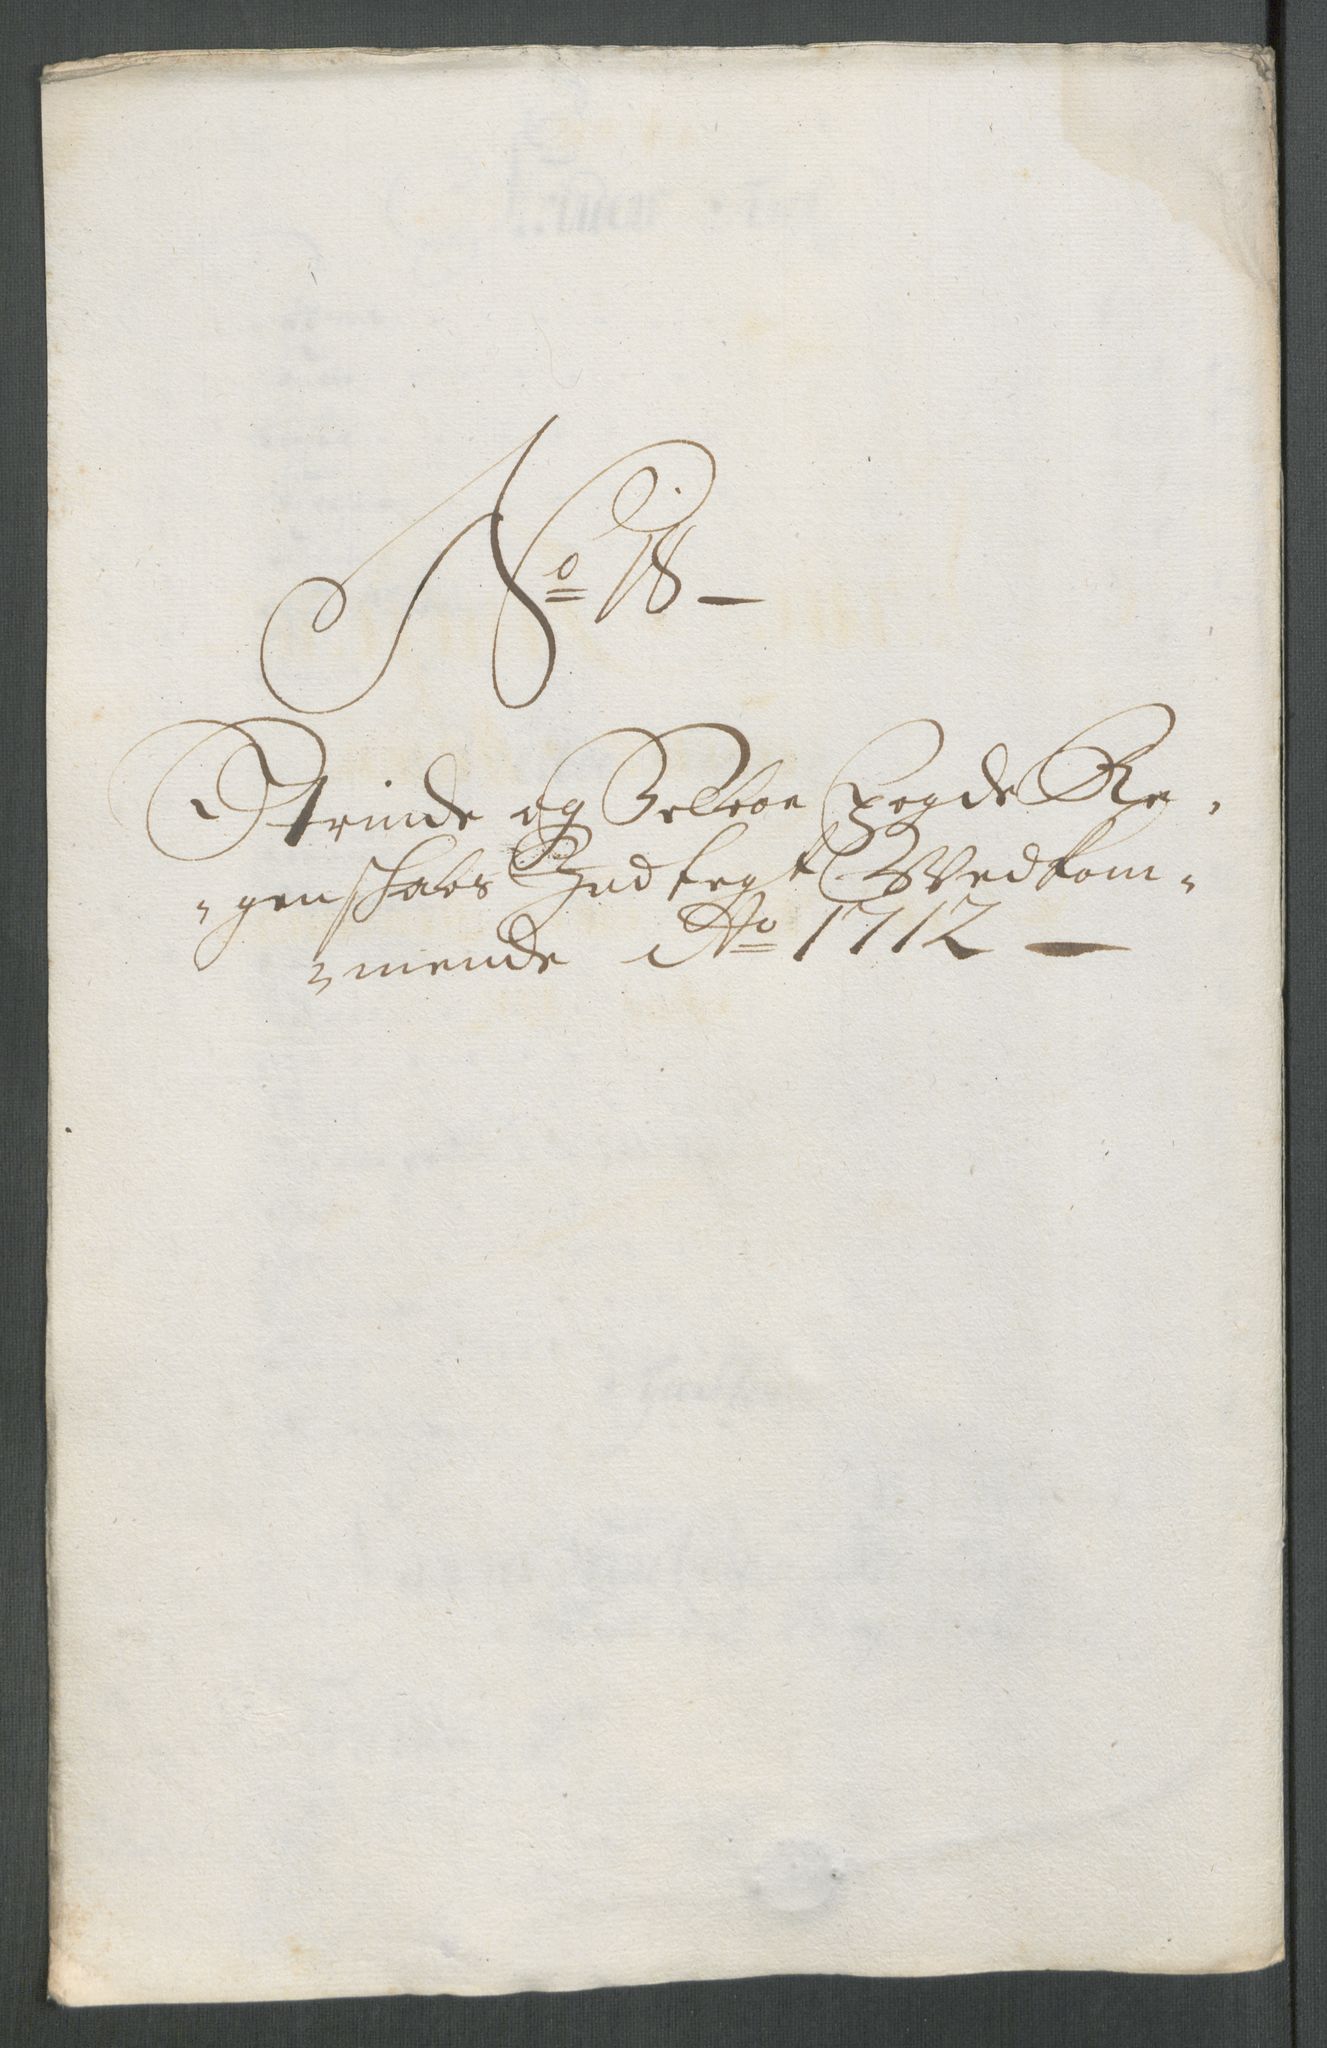 No 18
Strinde og Selboe Fogde Re-
genskabs Indtegt Vedkom-
mende Ao 1712